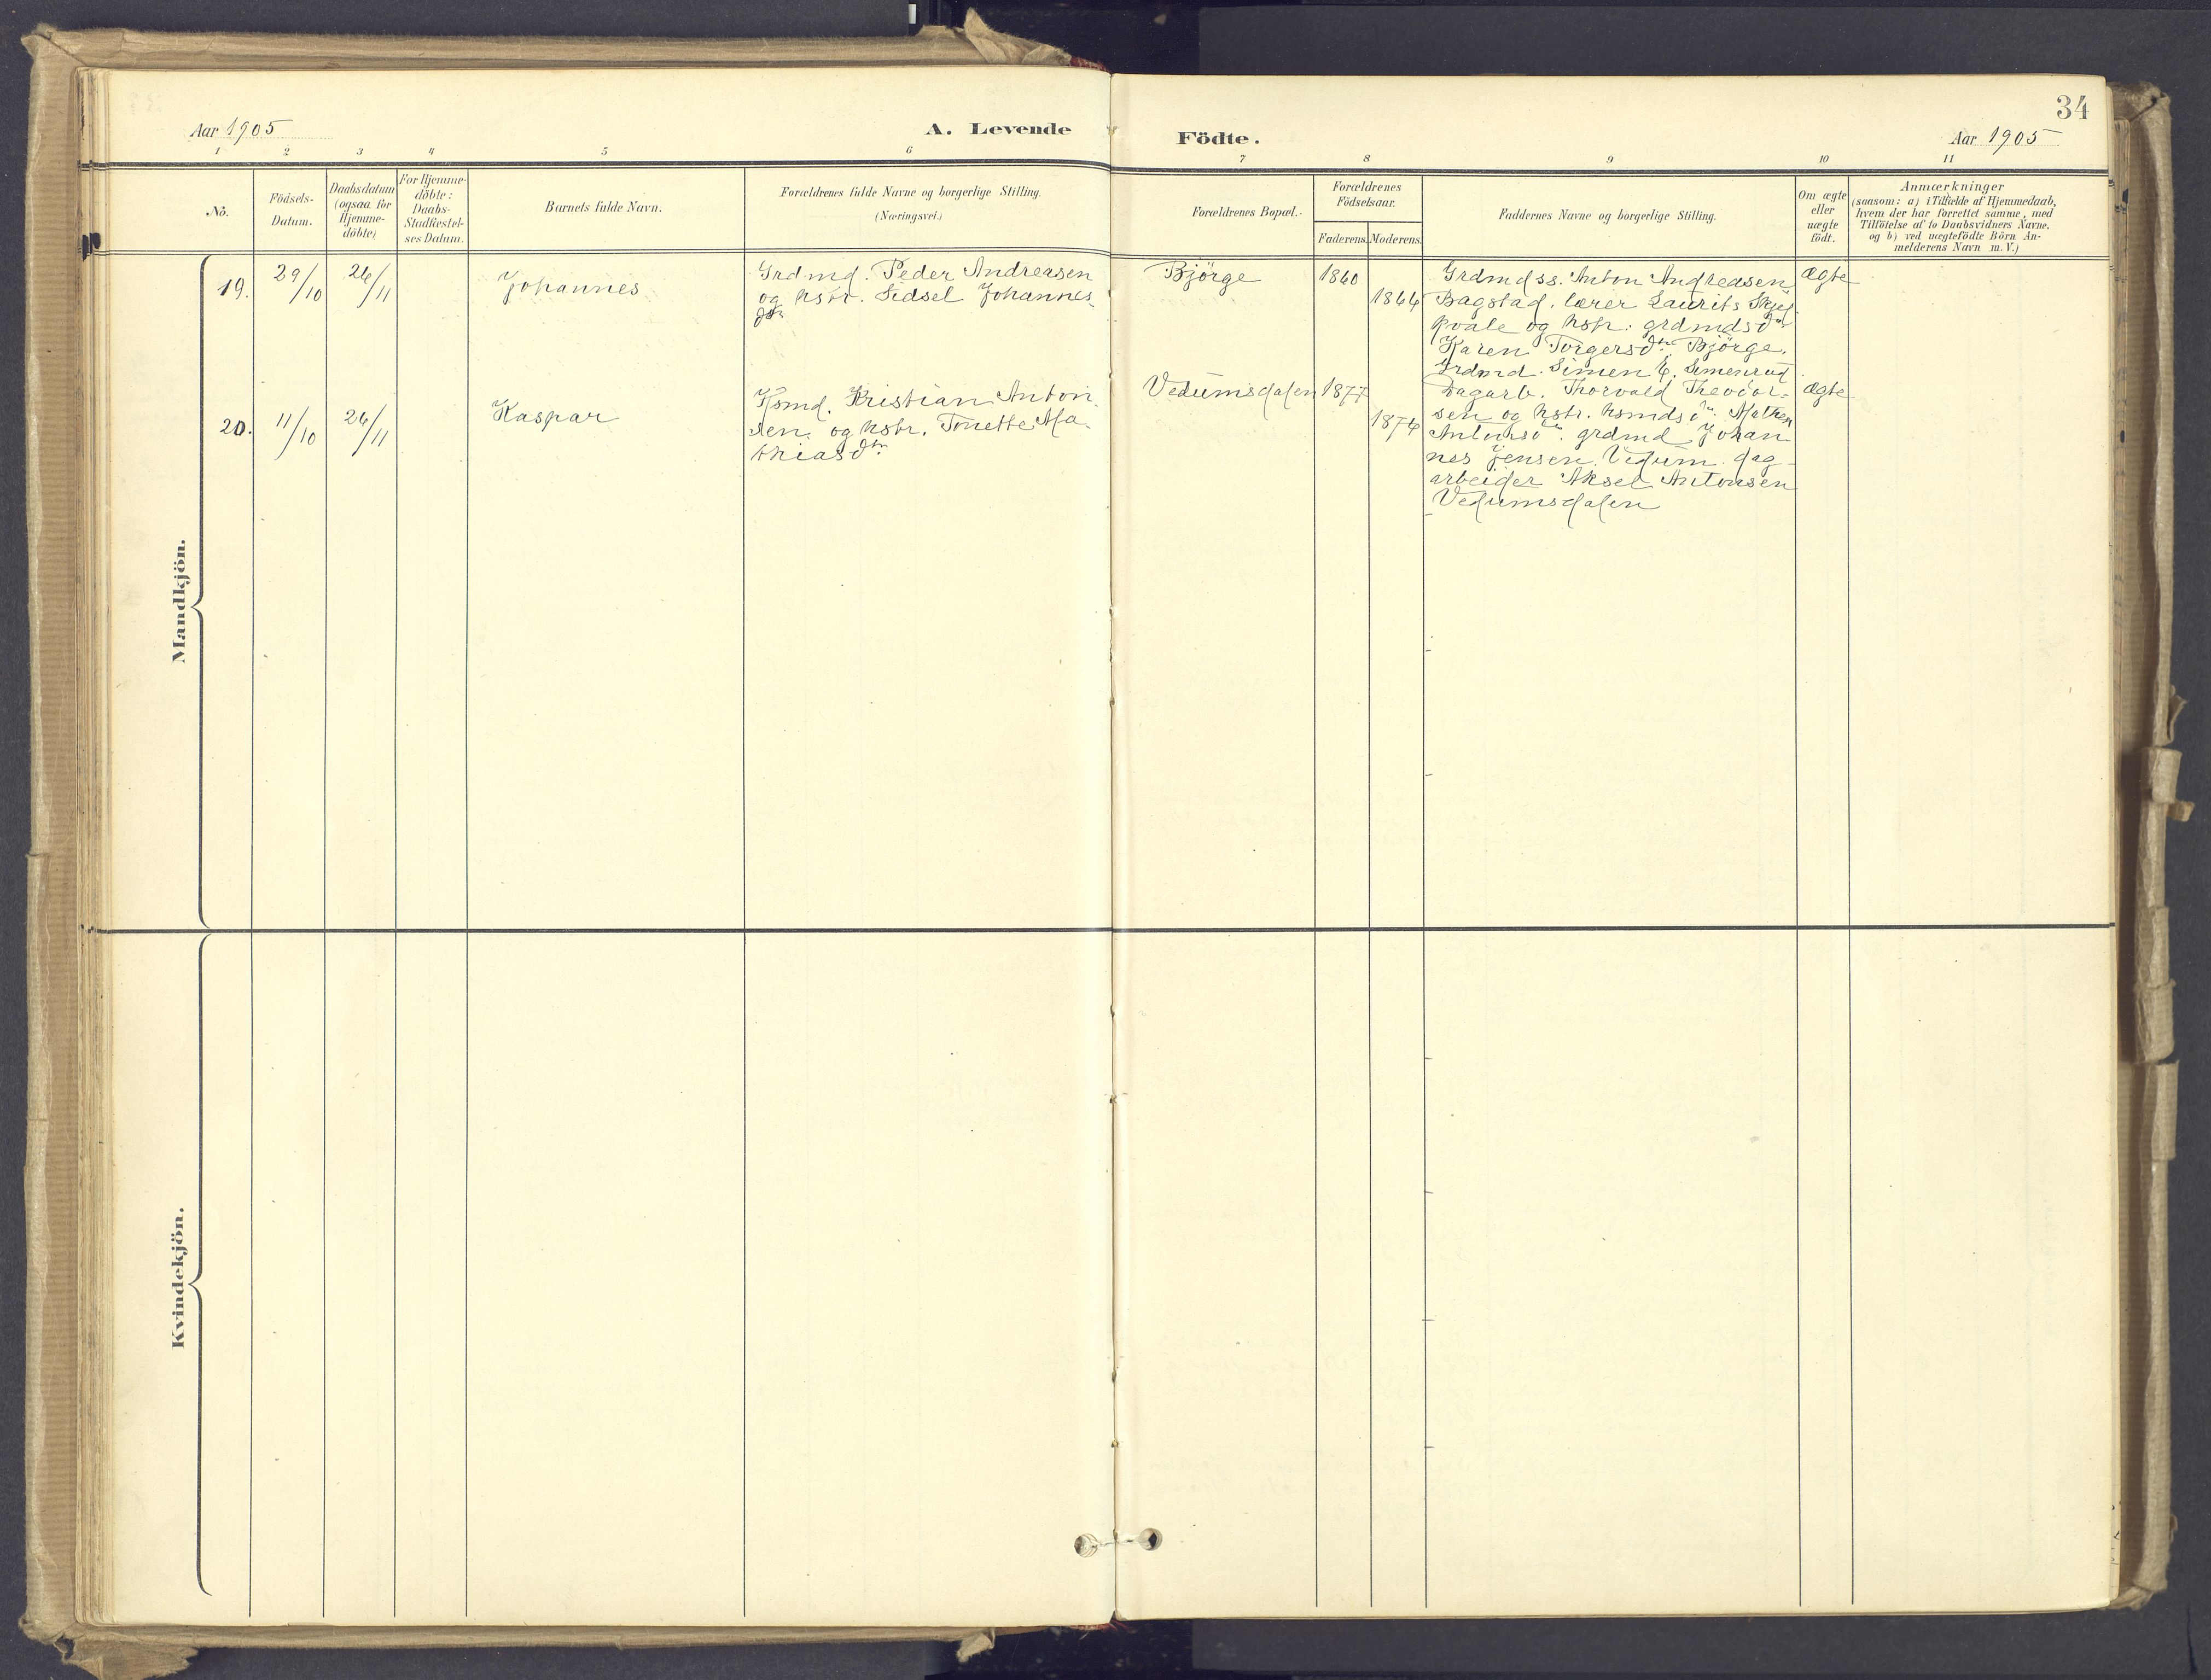 34
Aar 1905
A. Levende Födte.
Aar 1905
1 2 3 4 5 6 7 8 9 10 11
No.
Födsels-
Datum.
Daabsdatum
(ogsaa for
Hjemme-
döbte)
For Hjemme-
döbte:
Daabs-
Stadfestel-
ses Datum.
Barnets fulde Navn.
Forældrenes fulde Navne og borgerlige Stilling.
(Næringsvei.)
Forældrenes Bopæl.
Forældrenes
Födselsaar.
Faderens. Moderens.
Faddernes Navne og borgerlige Stilling.
Om ægte
eller
uægte
födt.
Anmærkninger
(saasom: a) i Tilfælde af Hjemmedaab,
hvem der har forrettet samme, med
Tilföielse af to Daabsvidners Navne.
og b) ved uægtefödte Börn An-
melderens Navn m. V.)
Mandkjön.
19.
29/10
26/11
Johannes
Grdmd. Peder Andreasen
og hstr. Sidsel Johannes-
dtr.
Bjørge
1860
1864
Grdmdss. Anton Andreasen
Bagstad. lærer Laurits Skjel-
kvale og hstr. grdmdsdtr
Karen Torgersdtr. Bjørge.
Grdmd. Simen E. Simenrud
Ægte
20.
11/10
26/11
Kaspar
Hsmd. Kristian Anton-
sen. og hstr. Tonette Ma-
thiasdtr.
Vedumsdalen
1877
1876
Dagarb. Thorvald Theodor-
sen og hstr. hsmdsdtr. Mathea
Antonsdtr. grdmd. Johan-
nes Jensen Vedum. dag-
arbeider Aksel Antonsen
Vedumsdalen
Ægte
Kvindekjön.